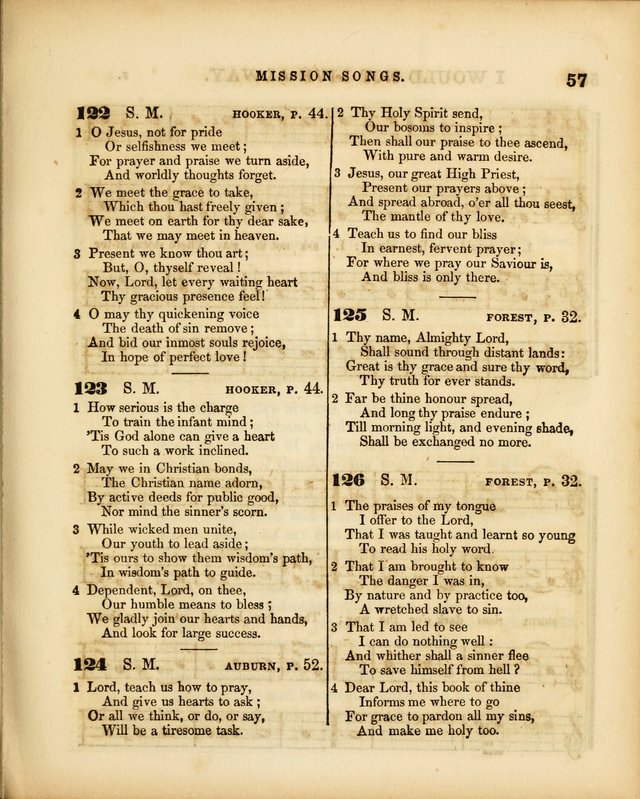 MISSION SONGS. 57
122 S. M. HOOKER, P. 44.
1 O Jesus, not for pride
Or selfishness we meet;
For prayer and praise we turn aside,
And worldly thoughts forget.
2 We meet the grace to take,
Which thou hast freely given;
We meet on earth for thy dear sake,
That we may meet in heaven.
3 Present we know thou art;
But, O, thyself reveal!
Now, Lord, let every waiting heart
Thy gracious presence feel!
4 O may thy quickening voice
The death of sin remove;
And bid our inmost souls rejoice,
In hope of perfect love!
123 S. M. HOOKER, P. 44.
1 How serious is the charge
To train the infant mind;
'Tis God alone can give a heart
To such a work inclined.
2 May we in Christian bonds,
The Christian name adorn,
By active deeds for public good,
Nor mind the sinner's scorn.
3 While wicked men unite,
Our youth to lead aside;
'Tis ours to show them wisdom's path,
In wisdom's path to guide.
4 Dependent, Lord, on thee,
Our humble means to bless;
We gladly join our hearts and hands,
And look for large success.
124 S. M. AUBURN, P. 52.
1 Lord, teach us how to pray,
And give us hearts to ask;
Or all we think, or do, or say,
Will be a tiresome task.
2 Thy Holy Spirit send,
Our bosoms to inspire;
Then shall our praise to thee ascend,
With pure and warm desire.
3 Jesus, our great High Priest,
Present our prayers above;
And spread abroad, o'er all thou seest,
The mantle of thy love.
4 Teach us to find our bliss
In earnest, fervent prayer;
For where we pray our Saviour is,
And bliss is only there.
125 S. M. FOREST, P. 32.
1 Thy name, Almighty Lord,
Shall sound through distant lands:
Great is thy grace and sure thy word,
Thy truth for ever stands.
2 Far be thine honour spread,
And long thy praise endure;
Till morning light, and evening shade,
Shall be exchanged no more.
126 S. M. FOREST, P. 32.
1 The praises of my tongue
I offer to the Lord,
That I was taught and learnt so young
To read his holy word.
2 That I am brought to know
The danger I was in,
By nature and by practice too,
A wretched slave to sin.
3 That I am led to see
I can do nothing well:
And whither shall a sinner flee
To save himself from hell?
4 Dear Lord, this book of thine
Informs me where to go
For grace to pardon all my sins,
And make me holy too.